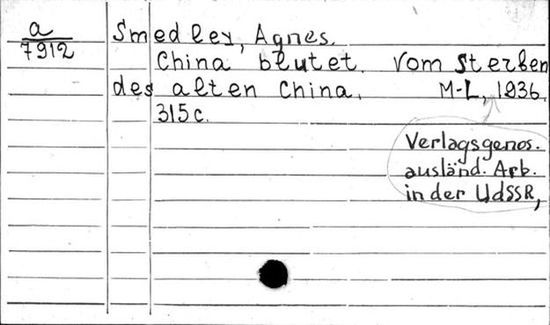 a
7912
Smedley, Agnes.
China blutet. Vom Sterben
des alten China.
M-L, 1936.
315 c.
Verlagsgenos.
ausländ. Arb.
in der UdSSR,